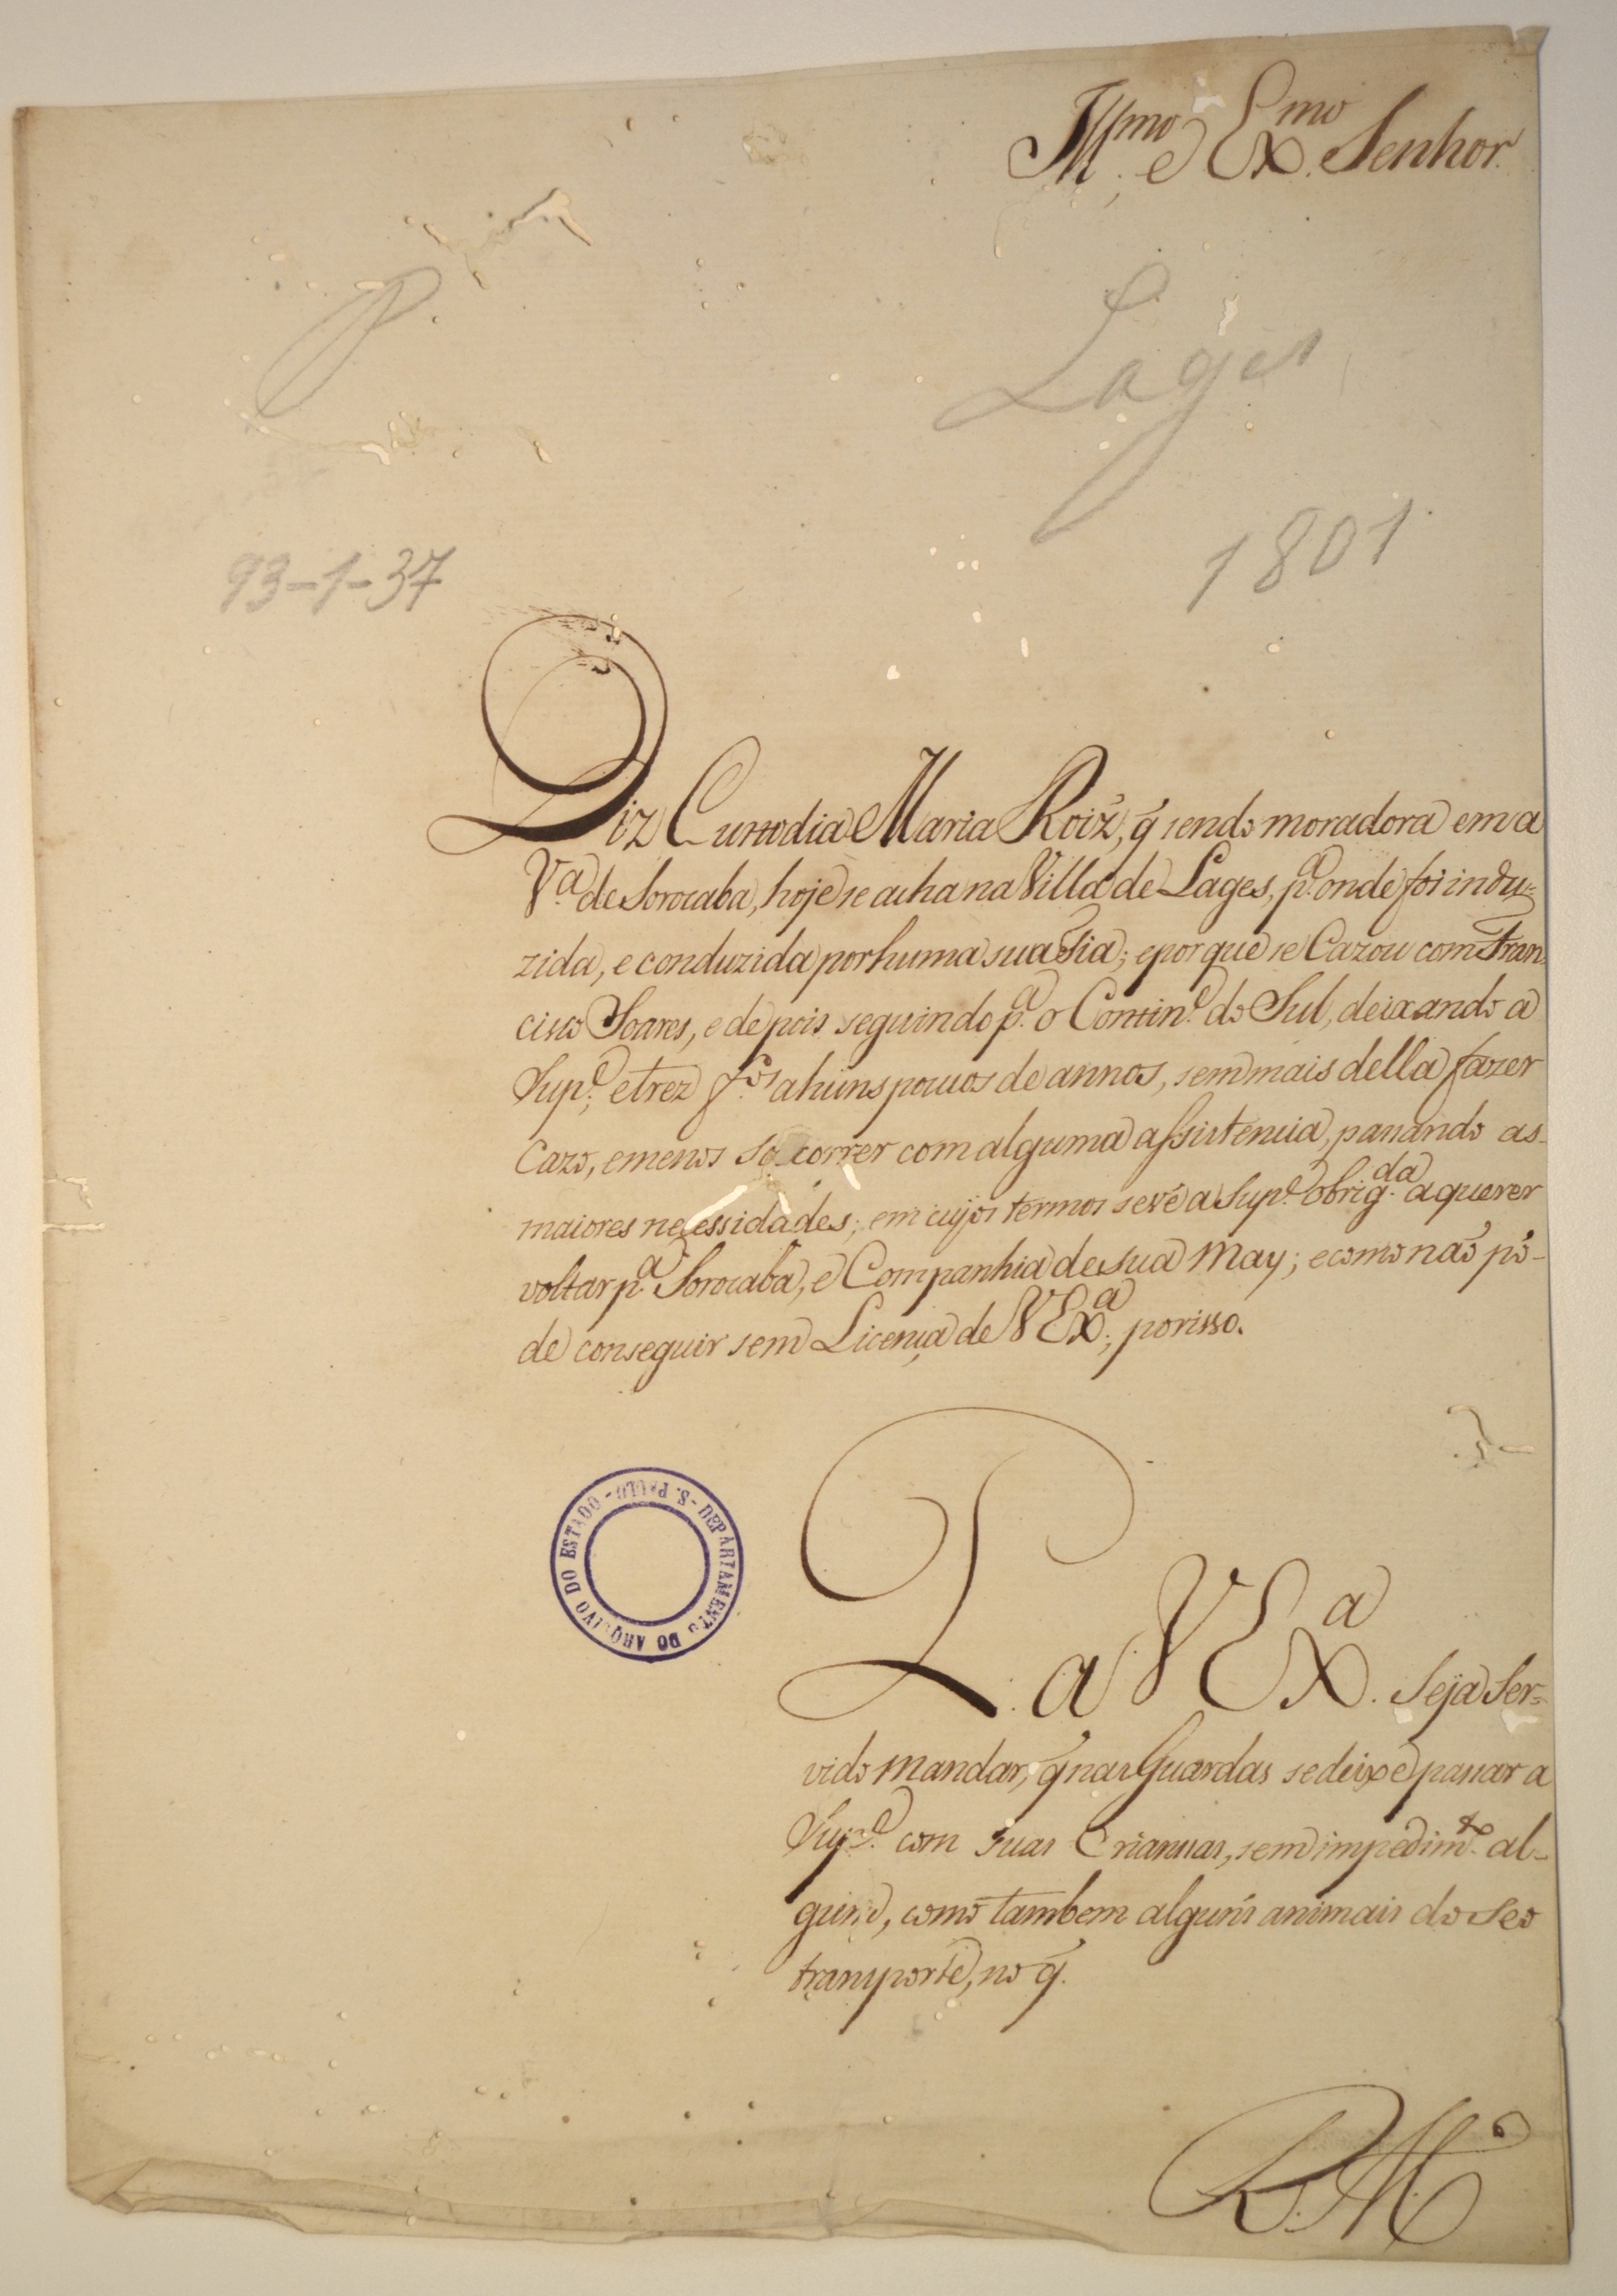 Ill.mo e Ex.mo Senhor.
Lages
1801
93-1-37
Diz Custodia Maria Roiz, q̃ sendo moradora em a
V.a de Sorocaba, hoje se acha na Villa de Lages, p.a onde foi indu=
zida, e conduzida por huma sua Tia; e por que se Cazou com Fran-
cisco Soares, e depois seguindo p.a o Contin.e do Sul, deixando a
Sup.e, e trez f.os a huns poucos de annos, sem mais della fazer
Cazo, e menos socorrer com alguma assistencia, passando as
maiores necessidades; em cujos termos se vê a Sup.e obrig.da a querer
voltar p.a Sorocaba, e Companhia de sua May; e como não pó-
de conseguir sem Licença de V Ex.a; por isso.
P. a V Ex.a Seja Ser=
vido mandar, q̃ nas Guardas se deixe passar a
Sup.e com suas Criansas, sem impedim.to al-
gum, como tambem alguns animais do seo
transporte, no q̃.
R. M.
DEPARTAMENTO DO ARQUIVO DO ESTADO - S. PAULO -